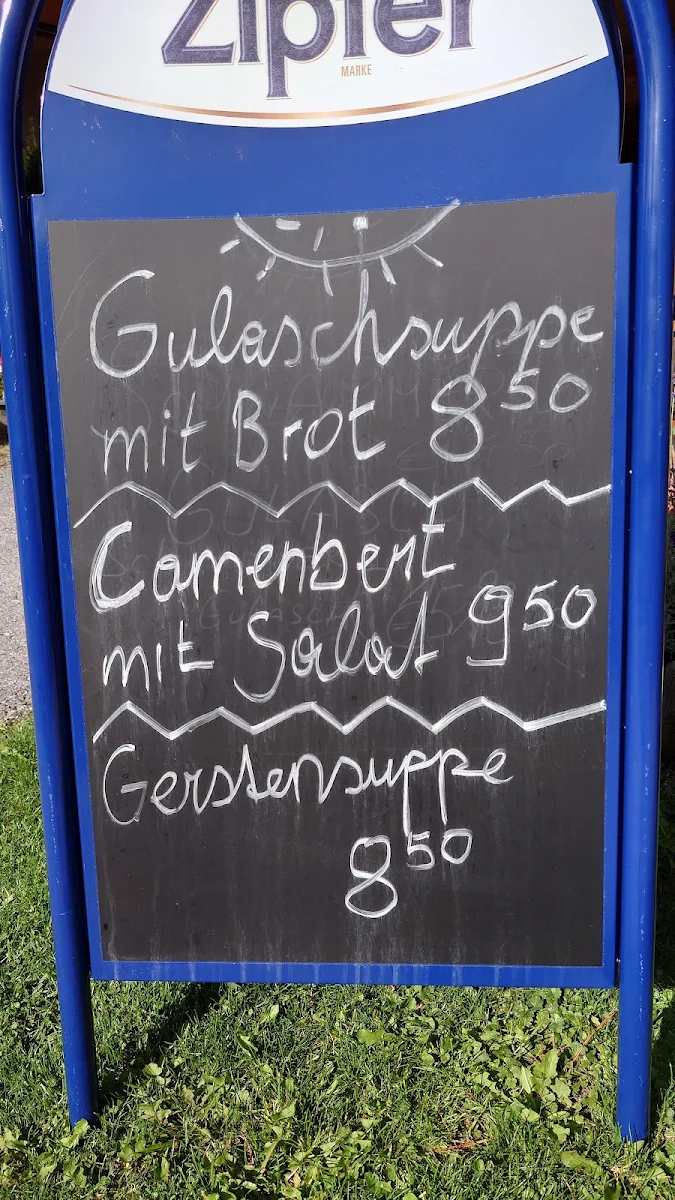 Zipfer
MARKE
Gulaschsuppe
mit Brot 8 50
Camenbert
mit Salat 9 50
Gerstensuppe
8 50